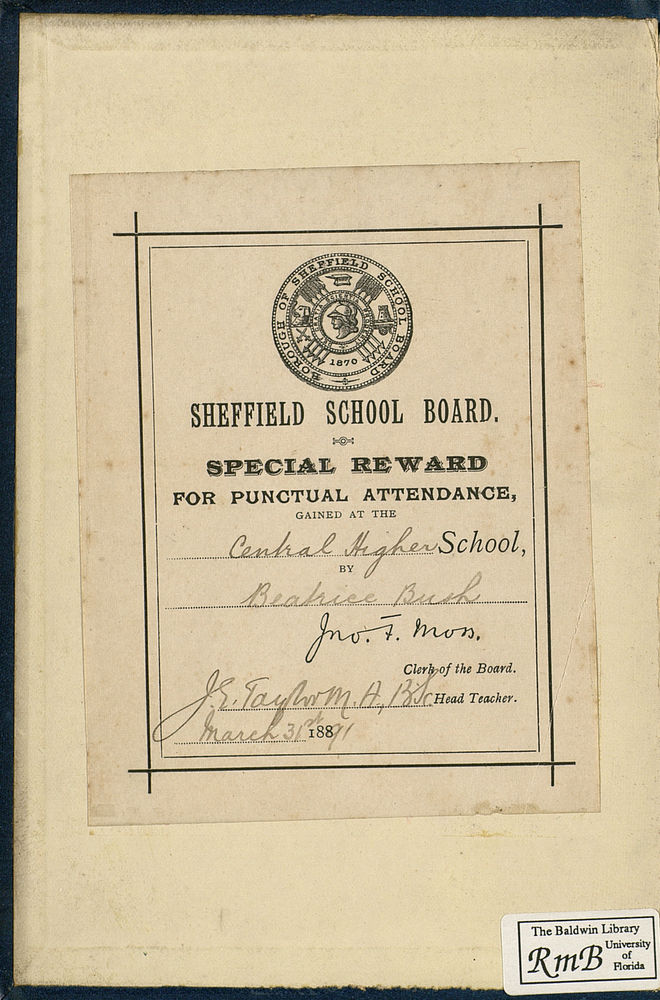 BOROUGH OF SHEFFIELD SCHOOL BOARD
1870
SHEFFIELD SCHOOL BOARD.
SPECIAL REWARD
FOR PUNCTUAL ATTENDANCE,
GAINED AT THE
Central Higher School,
BY
Beatrice Bush
Jno. F. Moss.
Clerk of the Board.
J. E. Taylor M.A, BSc Head Teacher.
March 31st 18891
The Baldwin Library
RmB University
of
Florida